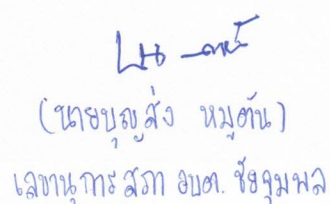 (นายบุญส่ง หมูตัน)
เลขานุการสภา อบต. ชัยจุมพล